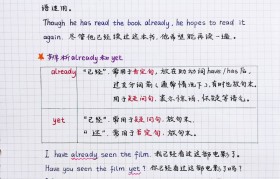 语连用。
Though he has read the book already, he hopes to read it
again. 尽管他已经读过这本书,他希望能再读一遍。
辨析already和yet
already "已经",常用于肯定句,放在助动词have/has后,
过去分词前(通常情况下),有时也放句末。
用于疑问句,表示惊讶、怀疑等语气。
yet "已经",常用于疑问句,放句末。
"还",常用于否定句,放句末。
I have already seen the film. 我已经看过这部电影了。
Have you seen the film yet? 你已经看过这部电影了吗